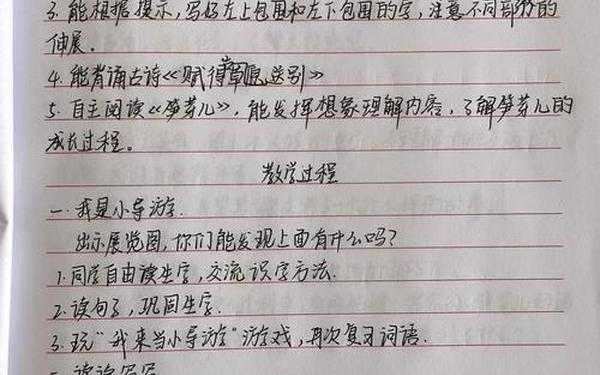 3. 能根据提示，写好左上包围和左下包围的字，注意不同部分的
伸展。
4. 能背诵古诗《赋得古草原送别》
5. 自主阅读《笋芽儿》，能发挥想象理解内容，了解笋芽儿的
成长过程。
教学过程
一. 我是小导游.
出示展览图，你们能发现上面有什么吗？
1. 同学自由读生字，交流识字方法.
2. 读句子，巩固生字.
3. 玩“我来当小导游”游戏，再次复习词语.
二. 读读写写